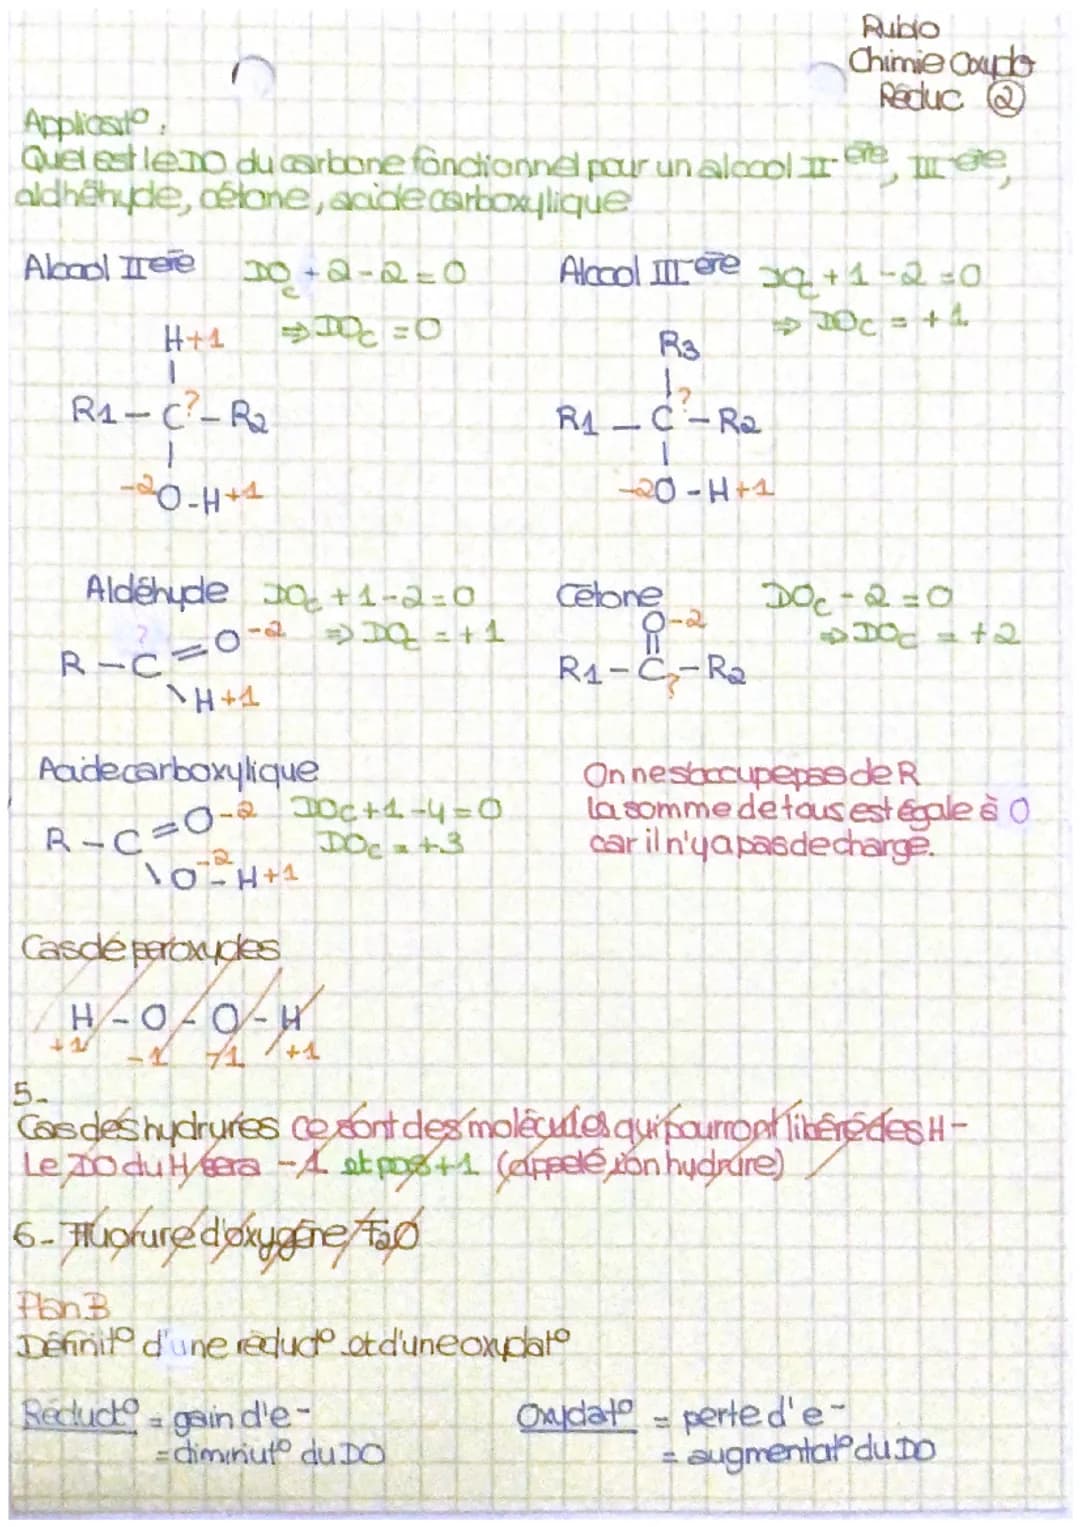 Rubio
Chimie Oxydo
Réduc ②
Applicat°:
Quel est le DO du carbone fonctionnel pour un alcool II ère, III ère,
aldhéhyde, cétone, acide carboxylique
Alcool II ère DOc + 2 - 2 = 0
⇒ DOc = 0
H+1
R1 - C? - R2
-2O-H+1
Alcool III ère DOc + 1 - 2 = 0
⇒ DOc = +1
R3
R1 - C? - R2
-2O-H+1
Aldéhyde DOc + 1 - 2 = 0
⇒ DOc = +1
?
R - C = O-2
H+1
Cétone DOc - 2 = 0
⇒ DOc = +2
O-2
R1 - C? - R2
Acide carboxylique
DOc + 1 - 4 = 0
DOc = +3
R - C = O-2
O-2 - H+1
On ne s'occupe pas de R
la somme de tous est égale à 0
car il n'y a pas de charge.
Cas de peroxydes
H - O - O - H
+1 -1 -1 +1
5-
Cas des hydrures ce sont des molécules qui pourront libéré des H-
Le DO du H sera -1 et pas +1 (appelé ion hydrure)
6- Fluorure d'oxygène F2O
Plan B
Définit° d'une réduct° et d'une oxydat°
Réduct° = gain d'e-
= diminut° du DO
Oxydat° = perte d'e-
= augmentat° du DO